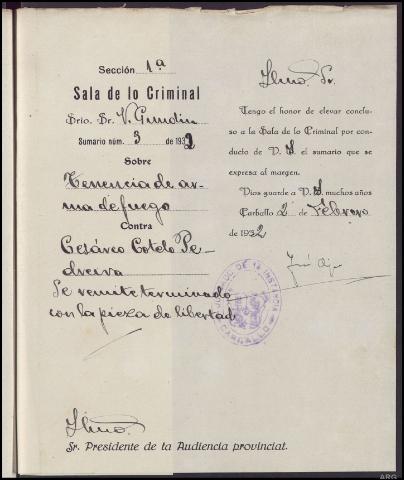 Sección 1ª
Sala de lo Criminal
Srio. Sr. V. Gundin
Sumario núm. 3 de 1932
Sobre
Tenencia de ar-
ma de fuego
Contra
Cesáreo Cotelo Pe-
dreira
Se remite terminado
con la pieza de libertad
Ilmo. Sr.
Tengo el honor de elevar conclu-
so a la Sala de lo Criminal por con-
ducto de V. I. el sumario que se
expresa al margen.
Dios guarde a V. I. muchos años
Carballo 2 de Febrero
de 1932
DE 1ª INSTANCIA
CARBALLO
Ilmo.
Sr. Presidente de la Audiencia provincial.
ARG